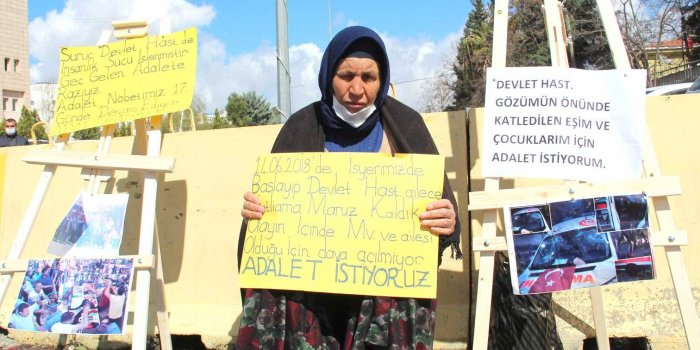 Suruç Devlet Hast. de
İnsanlık Suçu İşlenmiştir
Geç Gelen Adalete
Razıyız
Adalet Nöbetimiz 17.
Günde Devam
14.06.2018'de İşyerimizde
Başlayıp Devlet Hast. ailece
Katliama Maruz Kaldık
Olayın İçinde Mv. ve ailesi
Olduğu için dava açılmıyor
ADALET İSTİYORUZ
DEVLET HAST.
GÖZÜMÜN ÖNÜNDE
KATLEDİLEN EŞİM VE
ÇOCUKLARIM İÇİN
ADALET İSTİYORUM.